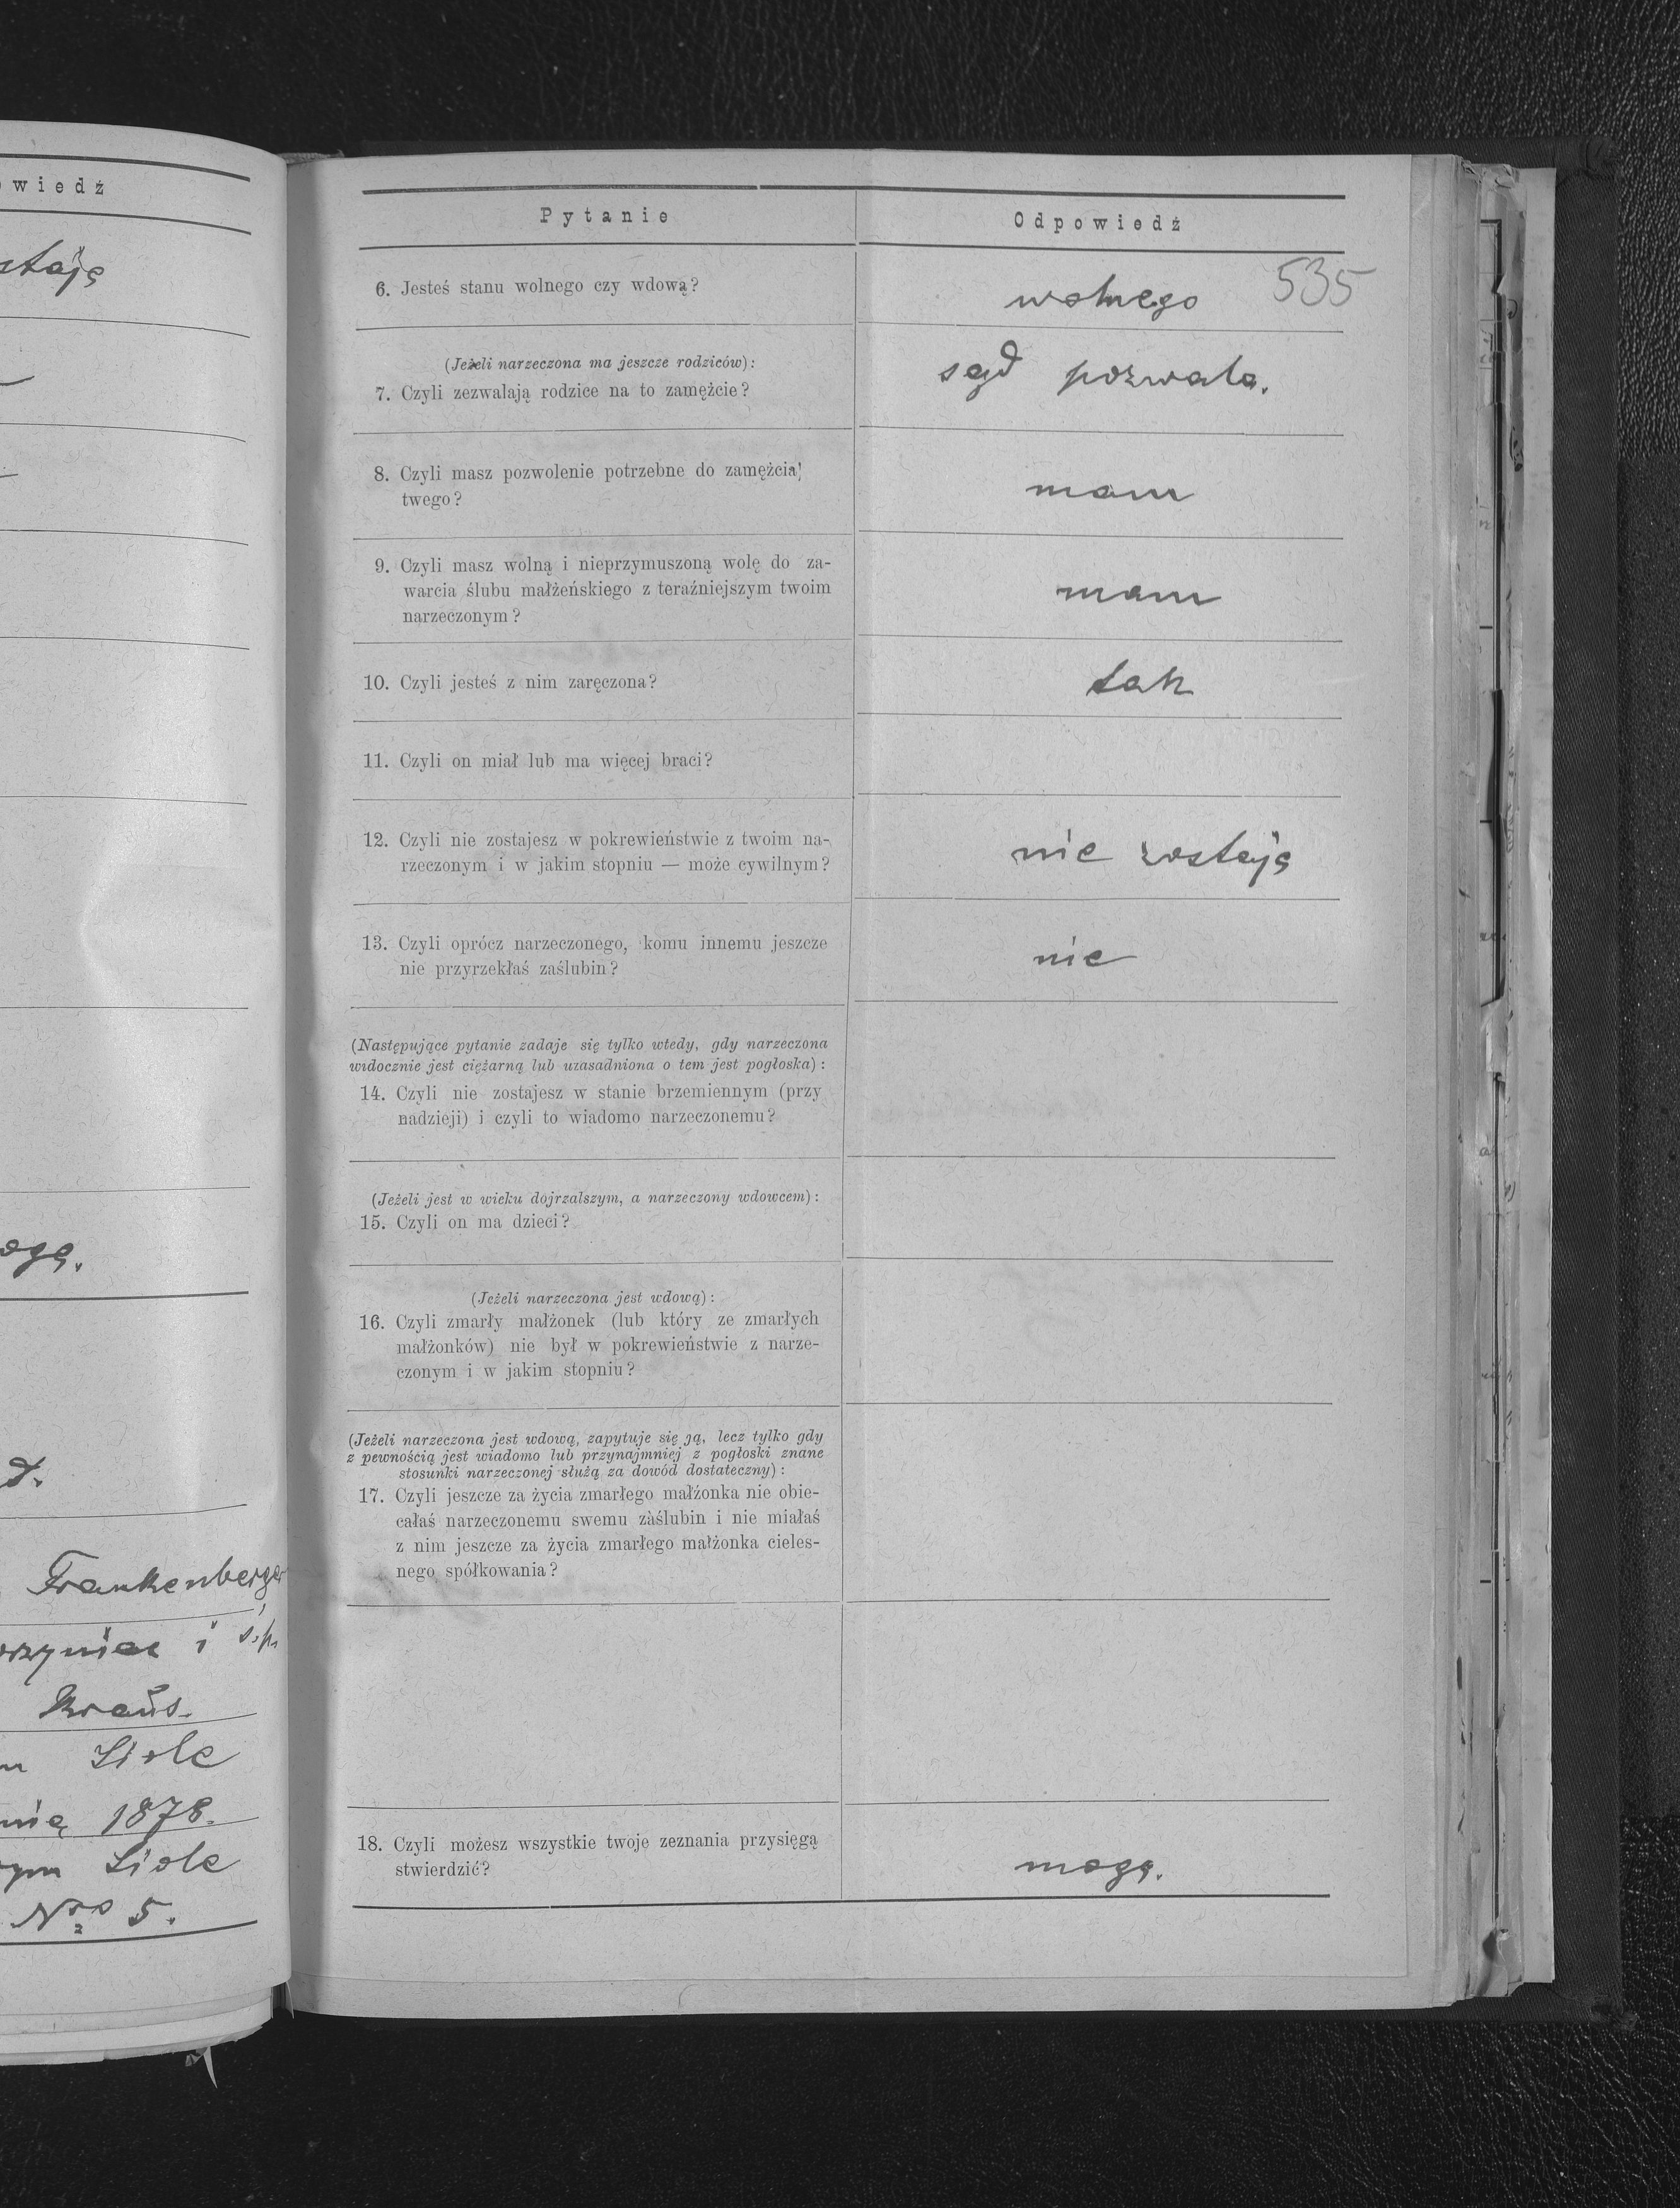 owiedź
stają
ogę.
Frankenberger
i ś.p.
Kraus.
Siole
1878.
Siole
Nro 5.
Pytanie
Odpowiedź
535
6. Jesteś stanu wolnego czy wdową?
wolnego
(Jeżeli narzeczona ma jeszcze rodziców):
7. Czyli zezwalają rodzice na to zamężcie?
sąd pozwala.
8. Czyli masz pozwolenie potrzebne do zamężcia
twego?
mam
9. Czyli masz wolną i nieprzymuszoną wolę do za-
warcia ślubu małżeńskiego z teraźniejszym twoim
narzeczonym?
mam
10. Czyli jesteś z nim zaręczona?
tak
11. Czyli on miał lub ma więcej braci?
12. Czyli nie zostajesz w pokrewieństwie z twoim na-
rzeczonym i w jakim stopniu — może cywilnym?
nie zostaję
13. Czyli oprócz narzeczonego, komu innemu jeszcze
nie przyrzekłaś zaślubin?
nie
(Następujące pytanie zadaje się tylko wtedy, gdy narzeczona
widocznie jest ciężarną lub uzasadniona o tem jest pogłoska):
14. Czyli nie zostajesz w stanie brzemiennym (przy
nadzieji) i czyli to wiadomo narzeczonemu?
(Jeżeli jest w wieku dojrzalszym, a narzeczony wdowcem):
15. Czyli on ma dzieci?
(Jeżeli narzeczona jest wdową):
16. Czyli zmarły małżonek (lub który ze zmarłych
małżonków) nie był w pokrewieństwie z narze-
czonym i w jakim stopniu?
(Jeżeli narzeczona jest wdową, zapytuje się ją, lecz tylko gdy
z pewnością jest wiadomo lub przynajmniej z pogłoski znane
stosunki narzeczonej służą za dowód dostateczny):
17. Czyli jeszcze za życia zmarłego małżonka nie obie-
całaś narzeczonemu swemu zaślubin i nie miałaś
z nim jeszcze za życia zmarłego małżonka cieles-
nego spółkowania?
18. Czyli możesz wszystkie twoje zeznania przysięgą
stwierdzić?
mogę.